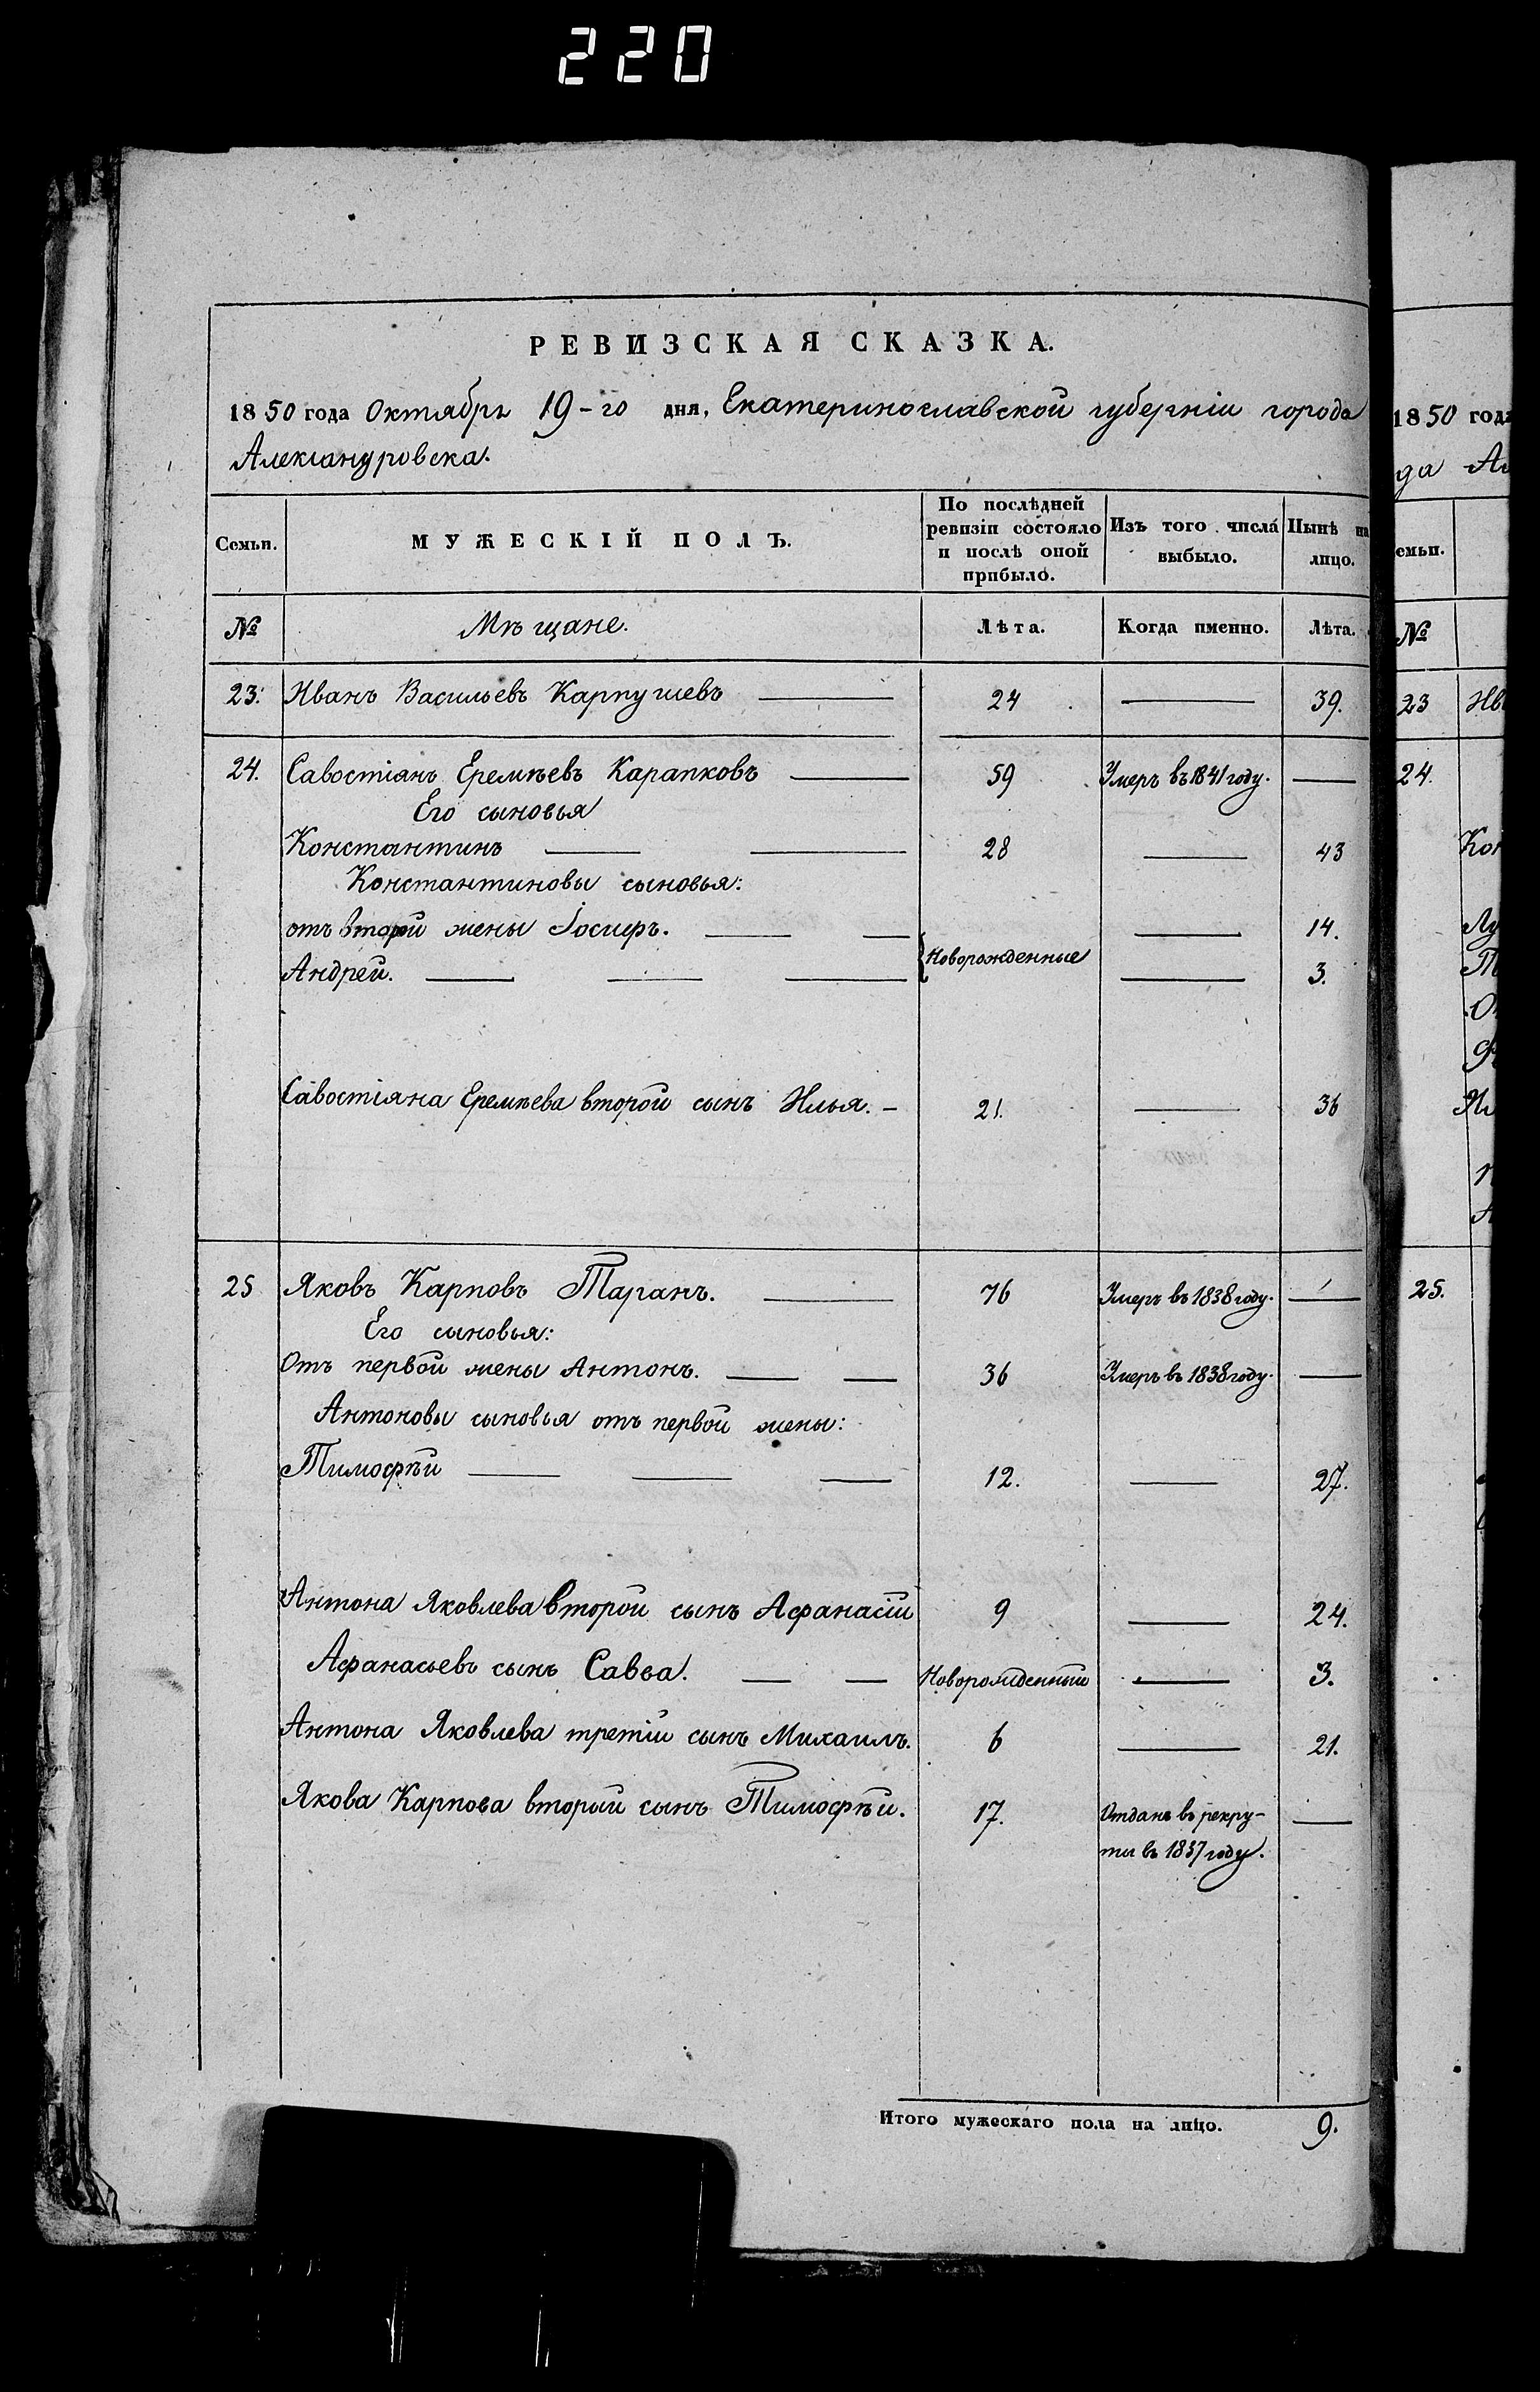 220
РЕВИЗСКАЯ СКАЗКА.
1850 года Октября 19-го дня, Екатеринославской губернiи города
Александровска.
Семьи. МУЖЕСКIЙ ПОЛЪ. По послѣдней ревизiи состояло и послѣ оной прибыло. Изъ того числа выбыло. Нынѣ на лицо.
№ Мѣщане. Лѣта. Когда именно. Лѣта.
23. Иванъ Васильевъ Карпушевъ — 24 — 39.
24. Савостiянъ Еремѣевъ Карапковъ — 59 Умеръ въ 1841 году. —
Его сыновья
Константинъ — — 28 — 43
Константиновы сыновья:
отъ второй жены Iосифъ. — — Новорожденные — 14.
Андрей. — — — — 3.
Савостiяна Еремѣева второй сынъ Илья. — 21. — 36
25 Яковъ Карповъ Таранъ. — 76 Умеръ въ 1838 году. —
Его сыновья:
Отъ первой жены Антонъ. — — 36 Умеръ въ 1838 году. —
Антоновы сыновья отъ первой жены:
Тимофѣй — — — 12. — 27.
Антона Яковлева второй сынъ Афанасiй 9 — 24.
Афанасьевъ сынъ Савва. — — Новорожденный — 3.
Антона Яковлева третiй сынъ Михаилъ. 6 — 21.
Якова Карпова второй сынъ Тимофѣй. 17. Отданъ въ рекру- —
ты въ 1837 году.
Итого мужескаго пола на лицо. 9.
1850 года
да
семьи.
№
23
24.
25.